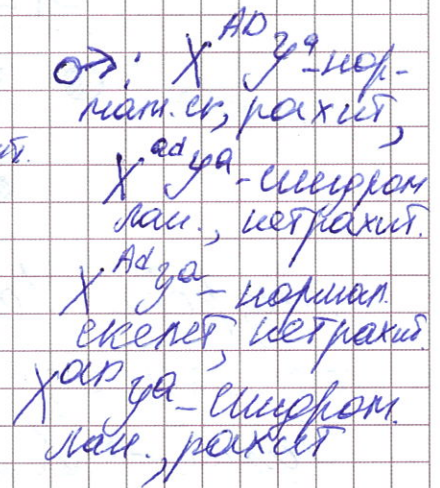 ♂: X^AD Y^a - нор-
мал. ск, рахит,
X^ad Y^a - синдром
лан., нет рахит.
X^Ad Y^a - нормал.
скелет, нет рахит.
X^aD Y^a - синдром.
лан., рахит